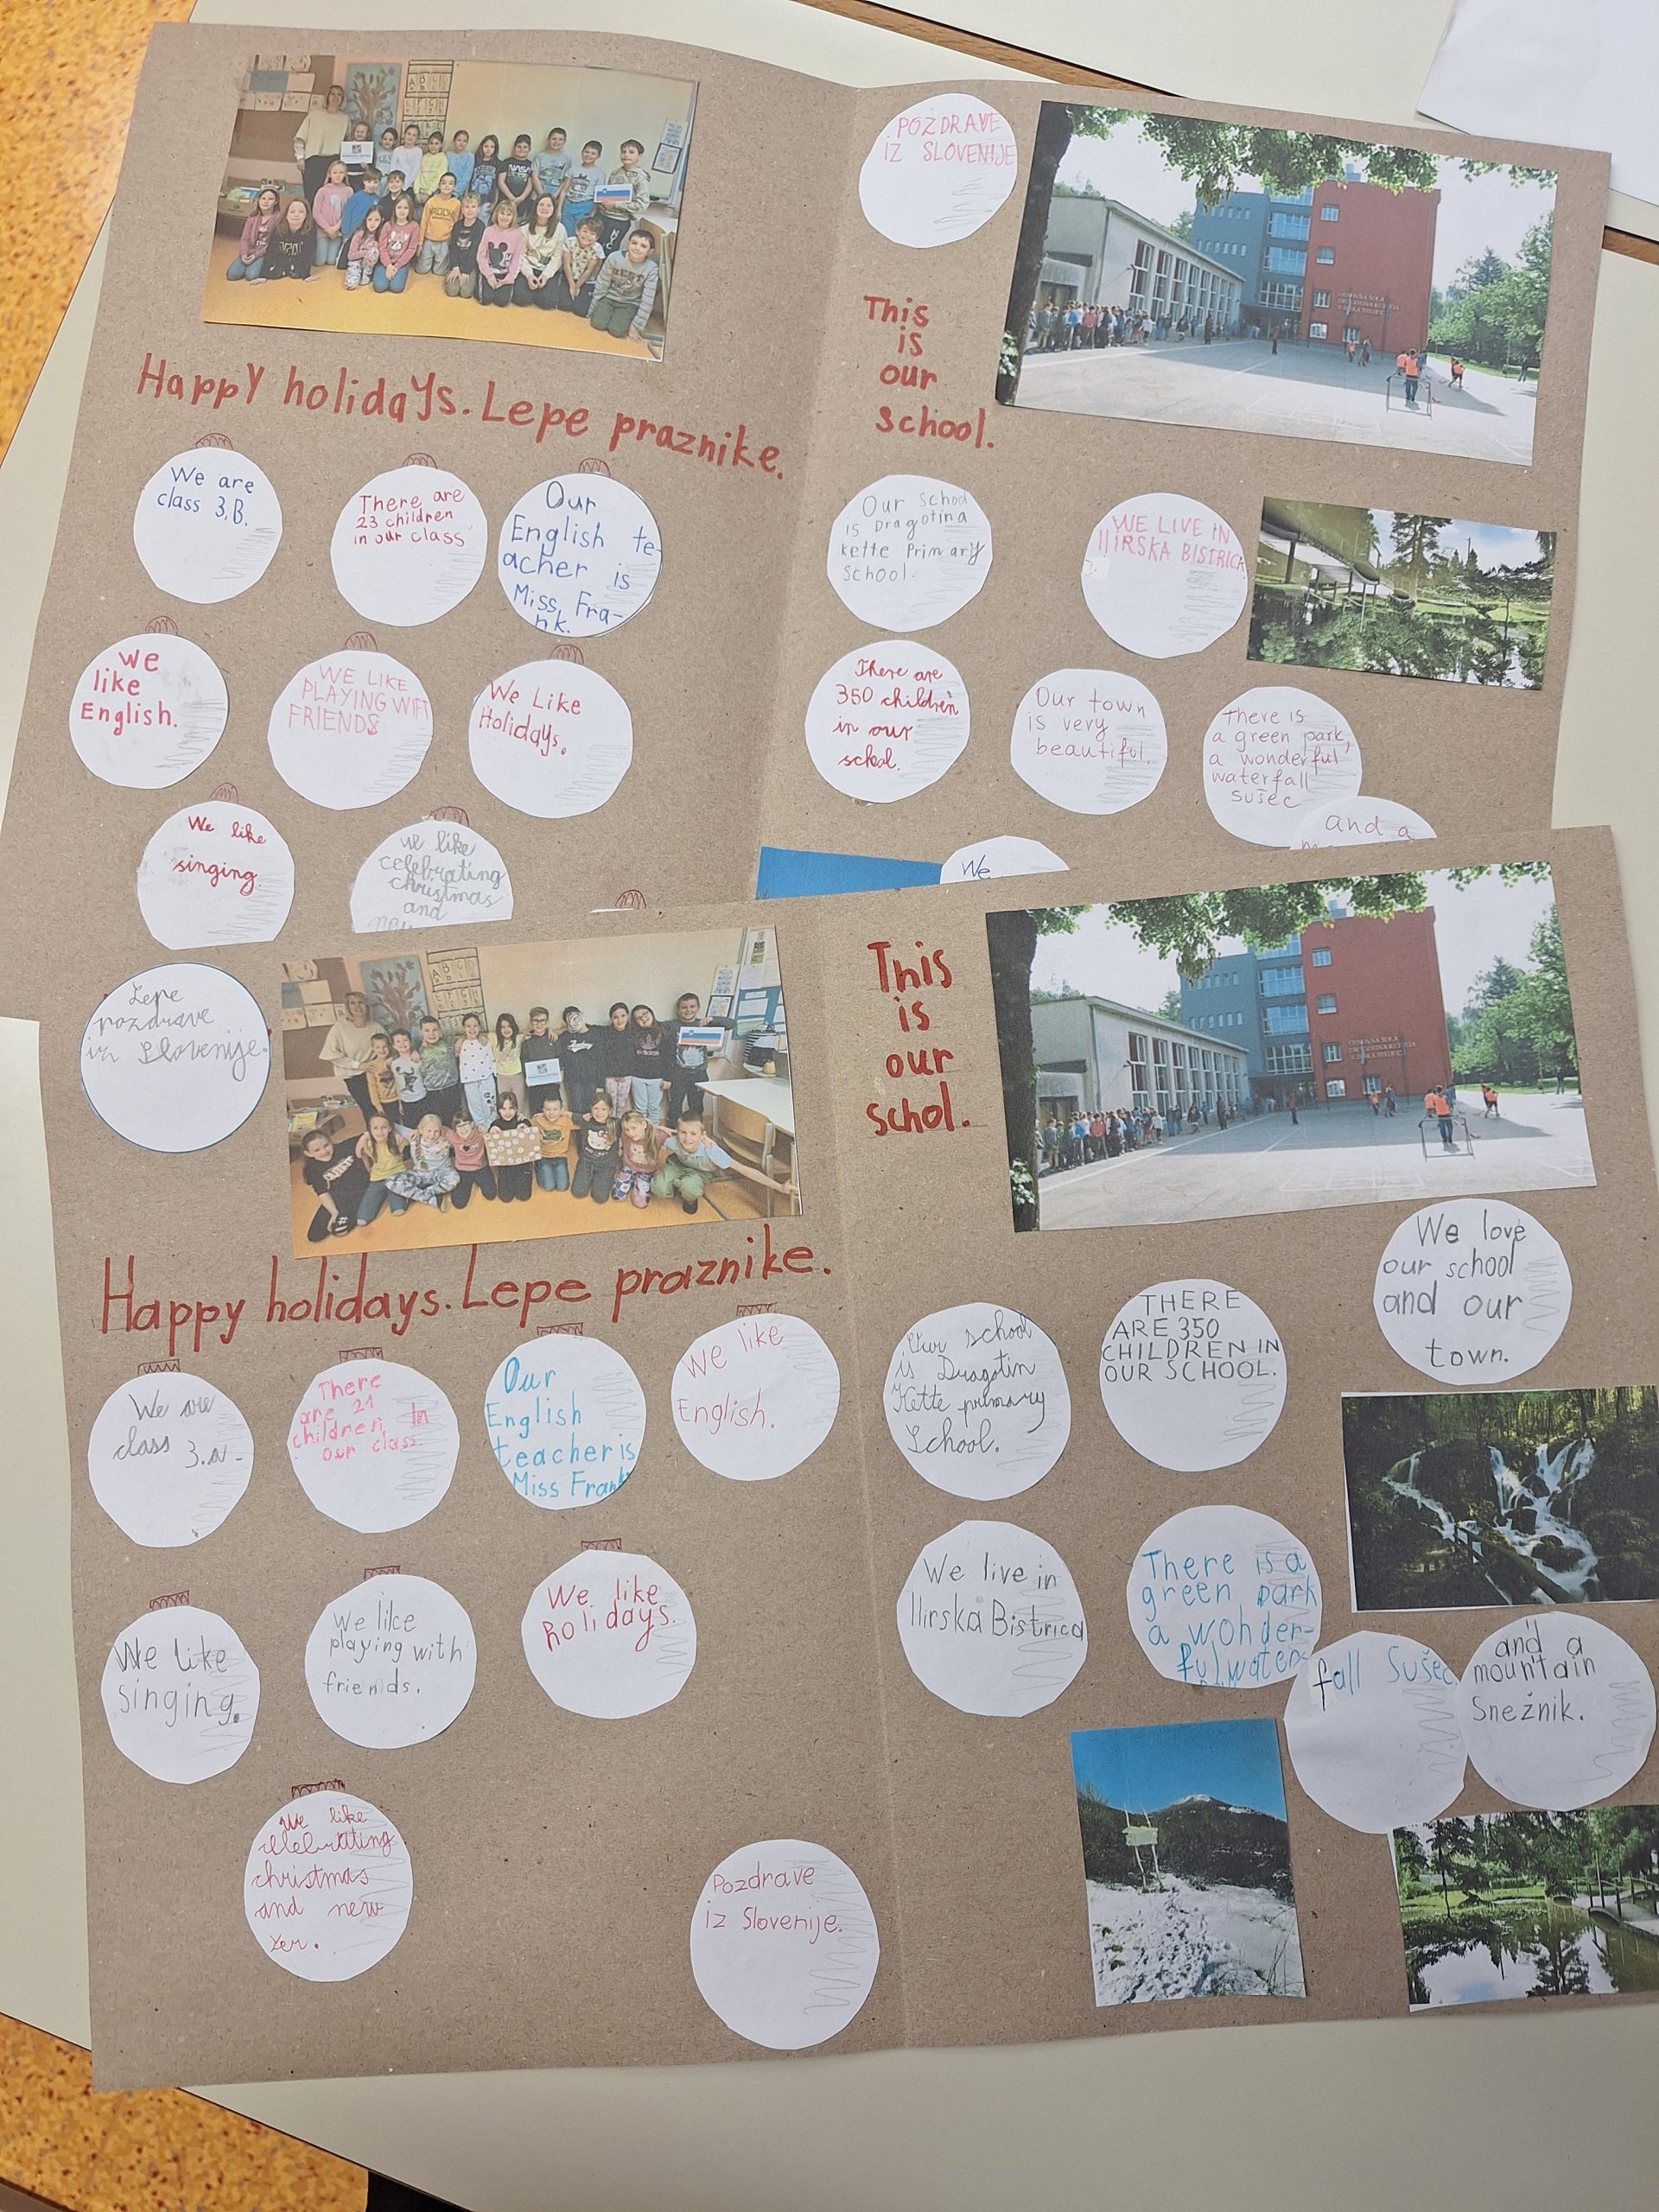 Happy holidays. Lepe praznike.
We are
class 3.B.
There are
23 children
in our class
Our
English te-
acher is
Miss. Fra-
nk.
We
like
English.
WE LIKE
PLAYING WIFT
FRIENDS
We Like
Holidays.
We like
singing.
we like
celebrating
christmas
and
POZDRAVE
IZ SLOVENIJE
This
is
our
school.
Our School
is Dragotina
kette Primary
School.
WE LIVE IN
IlIRSKA BISTRICA
There are
350 children
in our
school.
Our town
is very
beautiful.
There is
a green park,
a wonderful
waterfall
sušec
and a
We
Lepe
pozdrave
iz Slovenije.
Happy holidays. Lepe praznike.
We are
class 3.a.
There
are 21
children In
our class.
Our
English
teacher is
Miss Frank
We like
English.
We like
singing.
We like
playing with
friends.
We like
holidays.
We like
celebrating
christmas
and new
Yer.
Pozdrave
iz Slovenije.
This
is
our
schol.
Our school
is Dragotin
Kette primary
School.
THERE
ARE 350
CHILDREN IN
OUR SCHOOL.
We love
our school
and our
town.
We live in
Ilirska Bistrica
There is a
green park
a wonder-
ful water-
fall Sušec
and a
mountain
Snežnik.